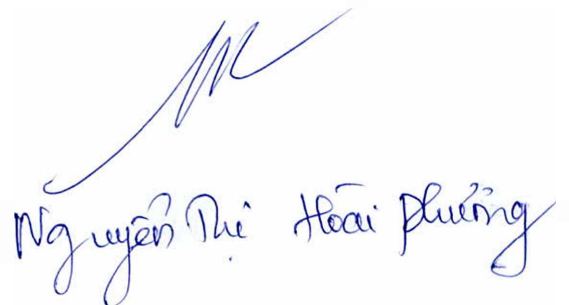 Nguyễn Thị Hoài Phương